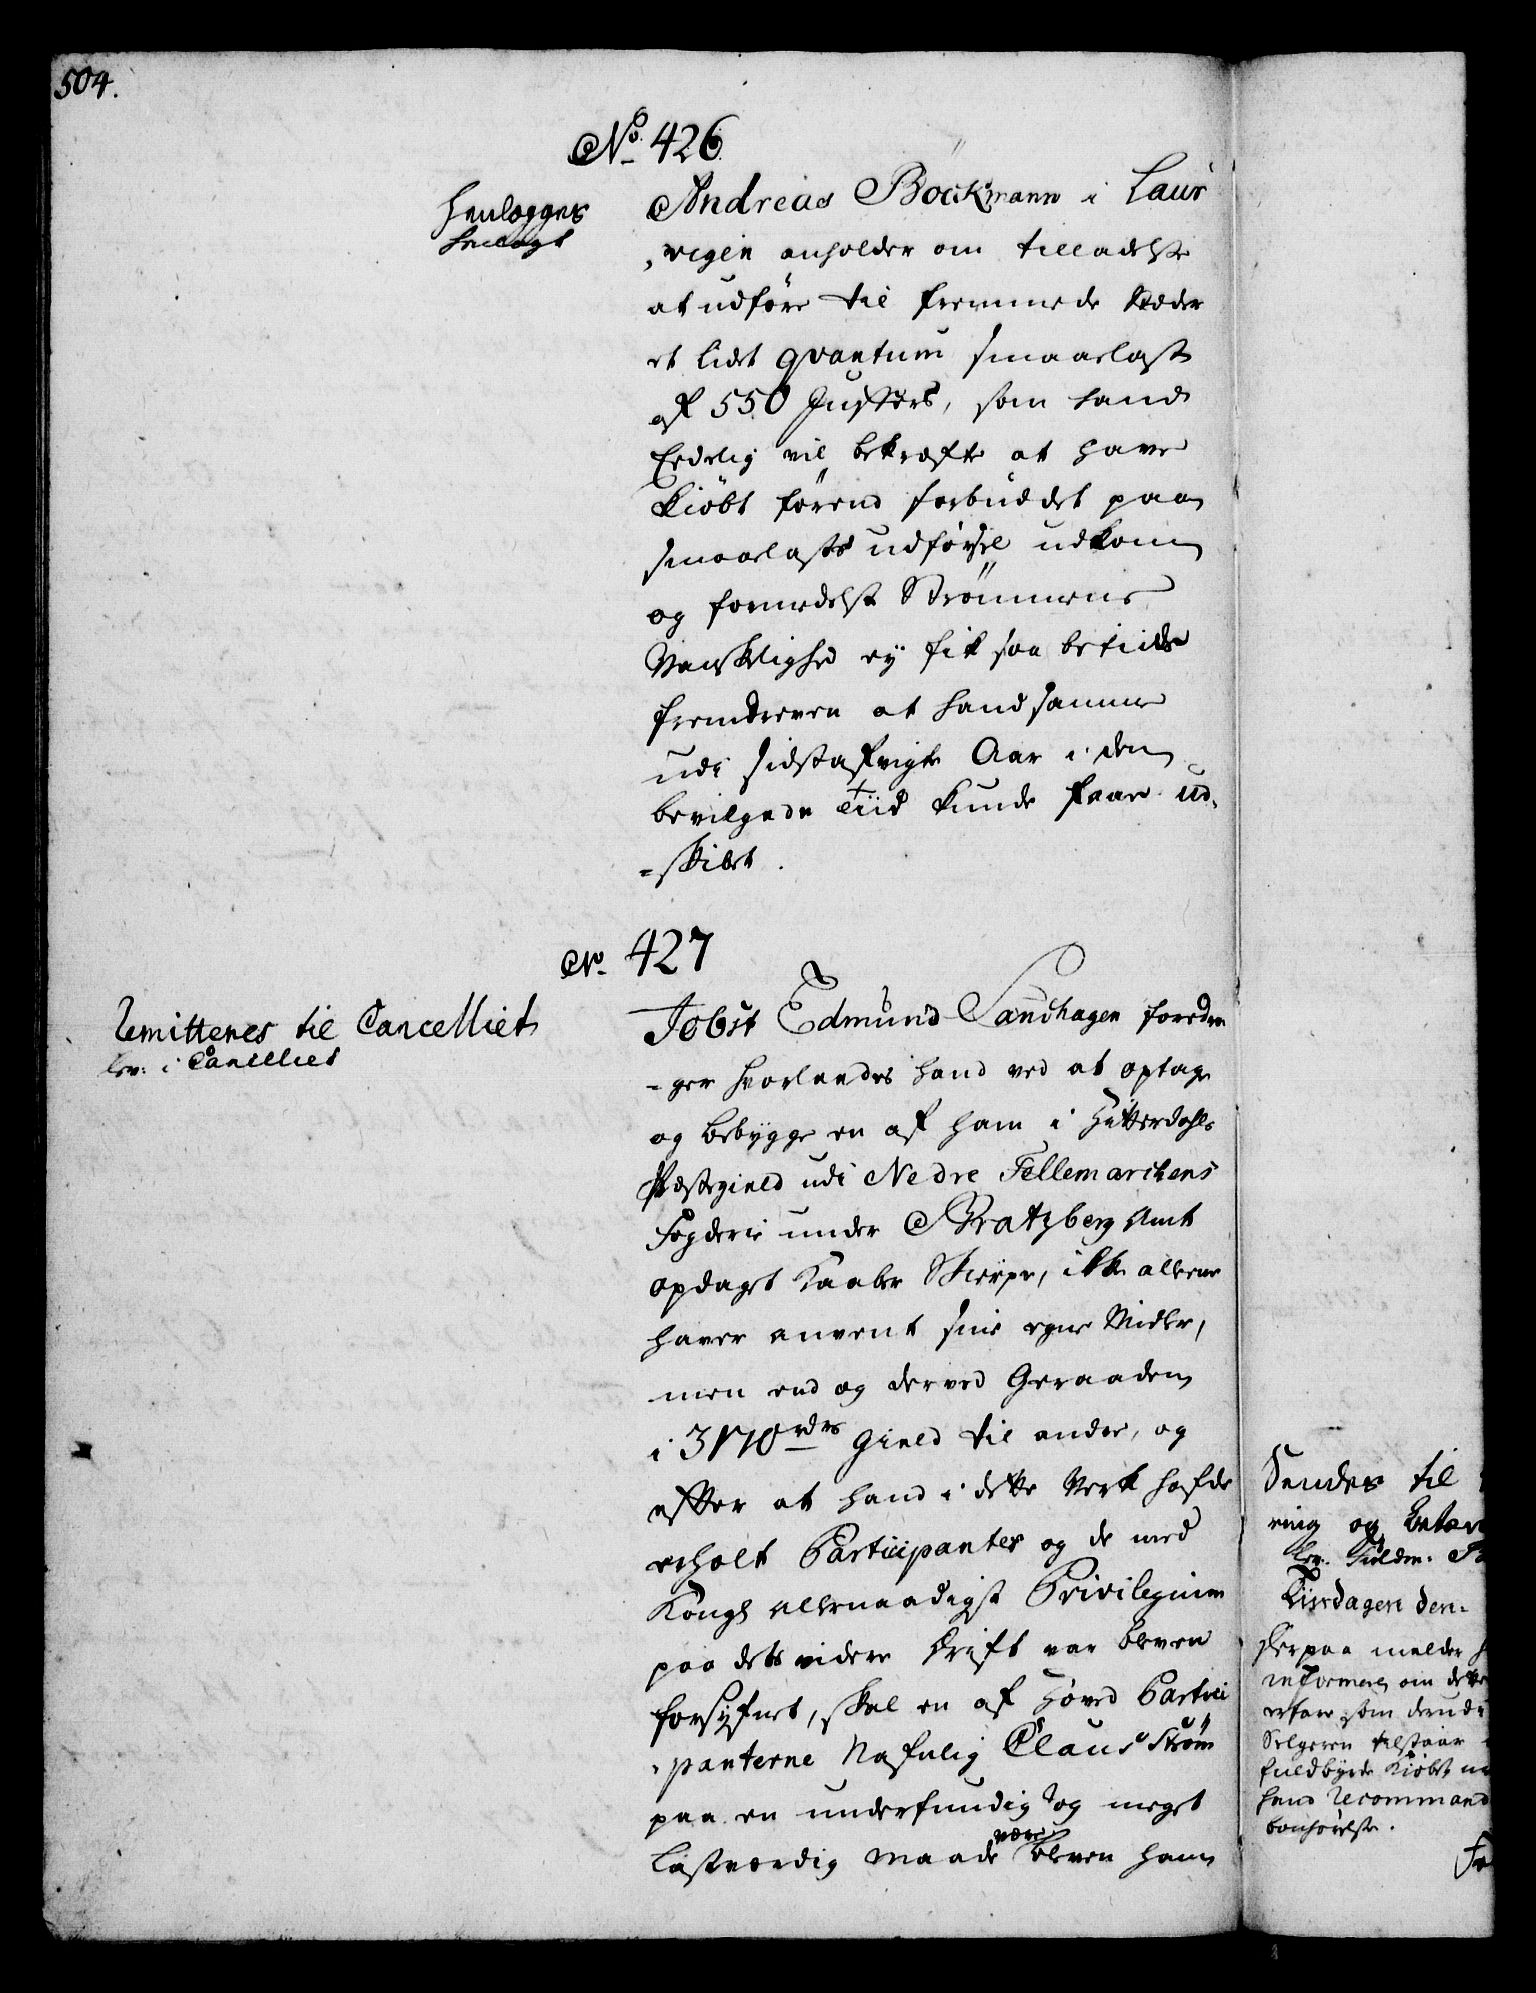 504.
No. 426
Henlegges
henlagt
Andreas Böckmann i Laur
„vigen anholder om tilladelse
at udføre til fremmede Stæder
et lidet qvantum smaaelast
af 550 Jusfers, som hand
Eedelig vil bekræfte at have
kiøbt førend forbuddet paa
smaaelasts udførsel udkom
og formedelst Strømmens
Vanskelighed ey fik saa betiids
fremdreven at hand samme
udi sidstafvigte Aar i den
bevilgede Tiid kunde faae ud-
=skibet.
No. 427
Remitteres til Cancelliet
lev: i Cancelliet
Jobst Edmund Sanchagen foredra
-ger hvorledes hand ved at optage
og bebygge en af ham i Hitterdahls
Præstegield udi Nedre Tellemarchens
Fogderie under Bratzberg Amt
opdaget Kaaber Skierpe, ikke alleene
haver anvent sine egne Midler,
men end og derved Geraaden
i 3170 rdrs Gield til andre, og
efter at hand i dette Verk hafde
erholt Participanter og de med
Kongl allernaadigst Privilegium
paa dets videre Drift var bleven
forsyfnet, skal en af Hoved Partici
„panterne Nafnlig Claus Strøm
paa en underfundig og meget
lastværdig Maade være bleven ham
Sendes til
ring og betæn
lev.
Tiisdagen den
herpaa melder
informere om dette
erfare som
Selgeren tilstaar
fuldbyrde Kiøbet
hand recommand
bønhørelse.